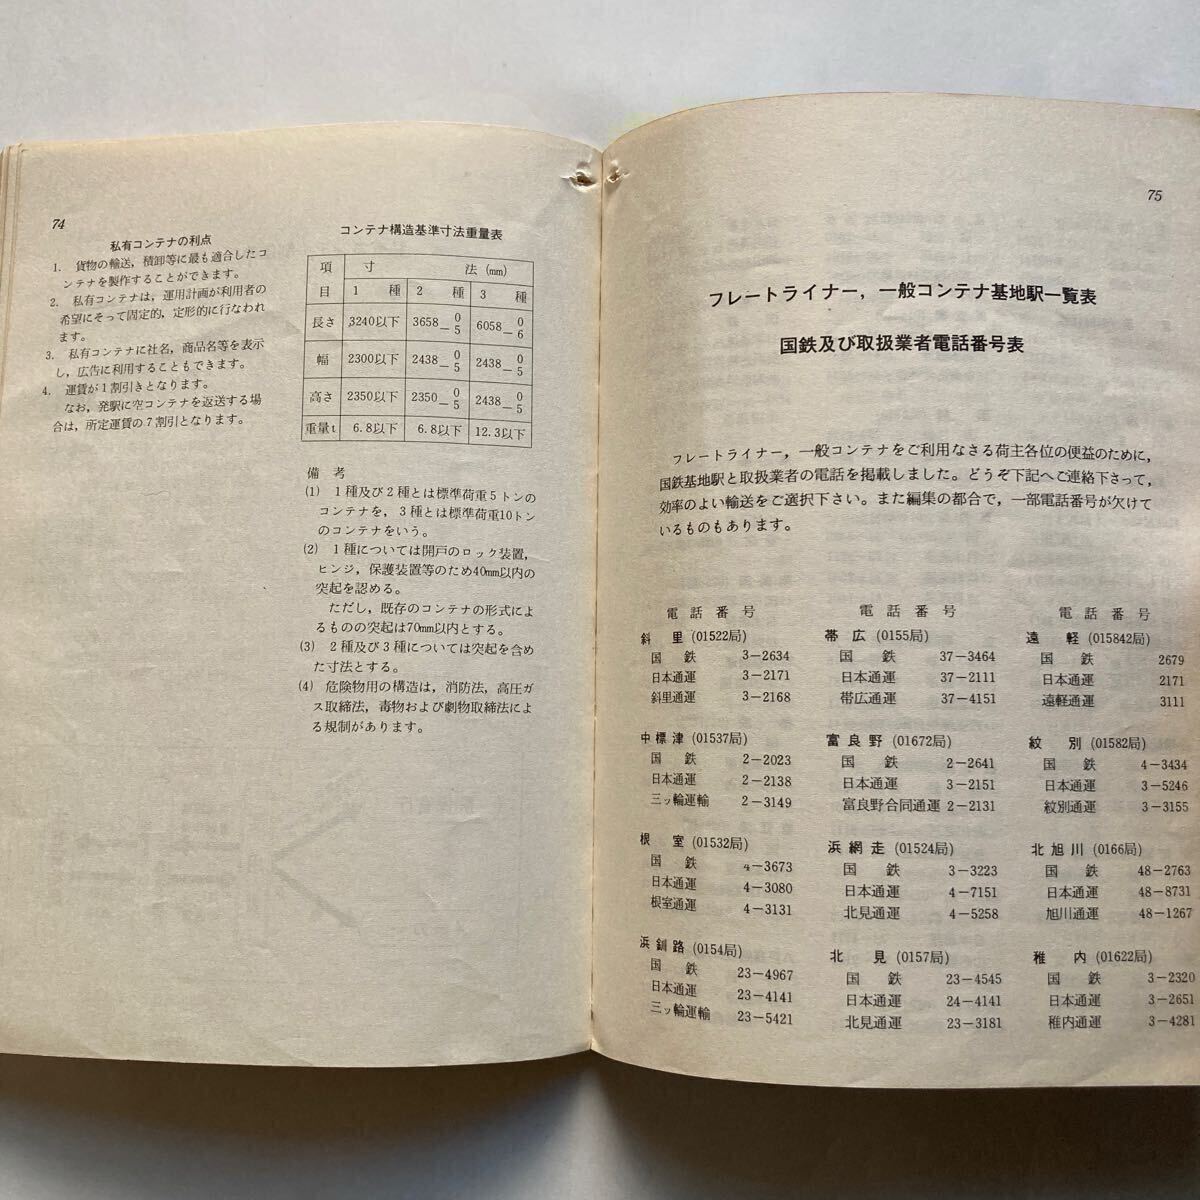 74
私有コンテナの利点
1. 貨物の輸送，積卸等に最も適合したコ
ンテナを製作することができます。
2. 私有コンテナは，運用計画が利用者の
希望にそって固定的，定形的に行なわれ
ます。
3. 私有コンテナに社名，商品名等を表示
し，広告に利用することもできます。
4. 運賃が1割引きとなります。
なお，発駅に空コンテナを返送する場
合は，所定運賃の7割引となります。
コンテナ構造基準寸法重量表
項目 寸法(mm)
1種 2種 3種
長さ 3240以下 3658 0 −5 6058 0 −6
幅 2300以下 2438 0 −5 2438 0 −5
高さ 2350以下 2350 0 −5 2438 0 −5
重量t 6.8以下 6.8以下 12.3以下
備考
(1) 1種及び2種とは標準荷重5トンの
コンテナを，3種とは標準荷重10トン
のコンテナをいう。
(2) 1種については開戸のロック装置，
ヒンジ，保護装置等のため40mm以内の
突起を認める。
ただし，既存のコンテナの形式によ
るものの突起は70mm以内とする。
(3) 2種及び3種については突起を含め
た寸法とする。
(4) 危険物用の構造は，消防法，高圧ガ
ス取締法，毒物および劇物取締法によ
る規制があります。
75
フレートライナー，一般コンテナ基地駅一覧表
国鉄及び取扱業者電話番号表
フレートライナー，一般コンテナをご利用なさる荷主各位の便益のために，
国鉄基地駅と取扱業者の電話を掲載しました。どうぞ下記へご連絡下さって，
効率のよい輸送をご選択下さい。また編集の都合で，一部電話番号が欠けて
いるものもあります。
電話番号
斜里 (01522局)
国鉄 3−2634
日本通運 3−2171
斜里通運 3−2168
中標津 (01537局)
国鉄 2−2023
日本通運 2−2138
三ッ輪運輸 2−3149
根室 (01532局)
国鉄 4−3673
日本通運 4−3080
根室通運 4−3131
浜釧路 (0154局)
国鉄 23−4967
日本通運 23−4141
三ッ輪運輸 23−5421
電話番号
帯広 (0155局)
国鉄 37−3464
日本通運 37−2111
帯広通運 37−4151
富良野 (01672局)
国鉄 2−2641
日本通運 3−2151
富良野合同通運 2−2131
浜網走 (01524局)
国鉄 3−3223
日本通運 4−7151
北見通運 4−5258
北見 (0157局)
国鉄 23−4545
日本通運 24−4141
北見通運 23−3181
電話番号
遠軽 (015842局)
国鉄 2679
日本通運 2171
遠軽通運 3111
紋別 (01582局)
国鉄 4−3434
日本通運 3−5246
紋別通運 3−3155
北旭川 (0166局)
国鉄 48−2763
日本通運 48−8731
旭川通運 48−1267
稚内 (01622局)
国鉄 3−2320
日本通運 3−2651
稚内通運 3−4281